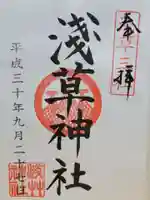 奉拝
浅草神社
平成三十年九月二十七日